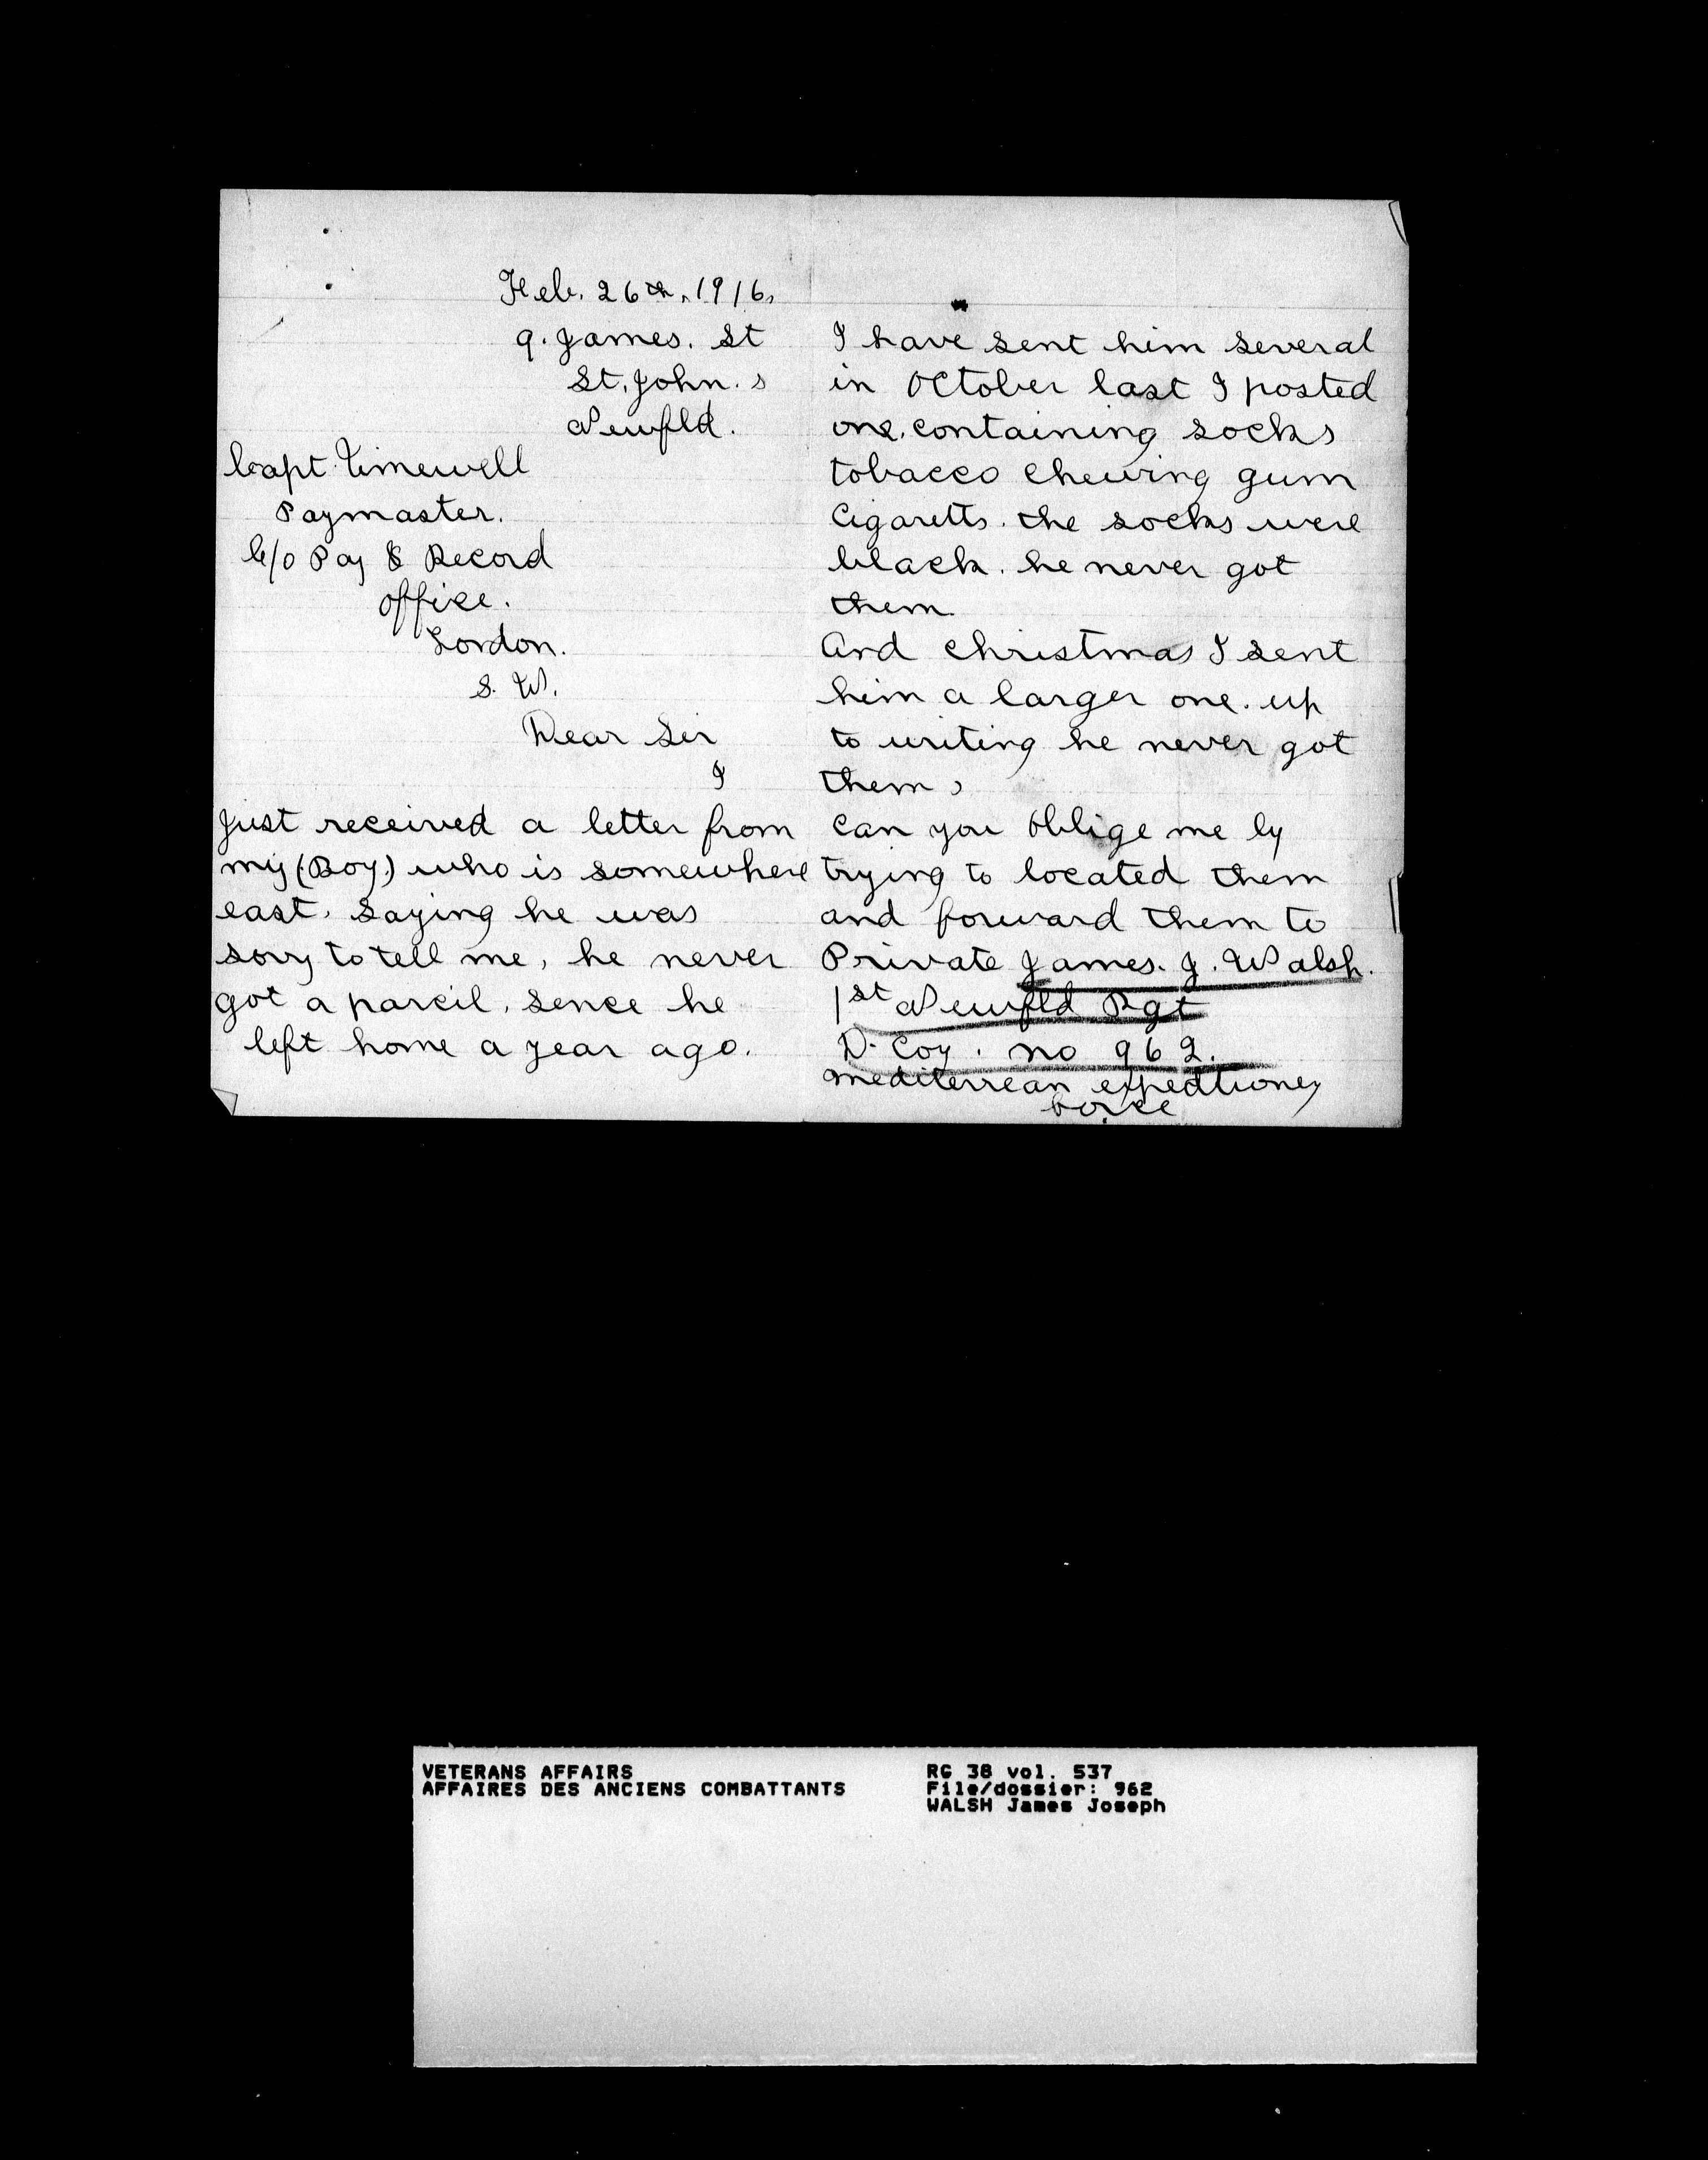 Feb. 26th, 1916,
9. James. St
St. John.s
Newfld.
Capt Timewell
Paymaster.
C/O Pay & Record
Office.
London.
S. W.
Dear Sir
I
just received a letter from
my (Boy.) who is somewhere
east, saying he was
sorry to tell me, he never
got a parcil, sence he
left home a year ago.
I have sent him several
in October last I posted
one, containing socks
tobacco chewing gum
Cigaretts. the socks were
black. he never got
them.
And christmas I sent
him a larger one. up
to writing he never got
them,
Can you oblige me by
trying to located them
and forward them to
Private James. J. Walsh.
1st Newfld Rgt
D. Coy. no 962.
mediterrean expedtioney
force
VETERANS AFFAIRS
AFFAIRES DES ANCIENS COMBATTANTS
RG 38 vol. 537
File/dossier: 962
WALSH James Joseph